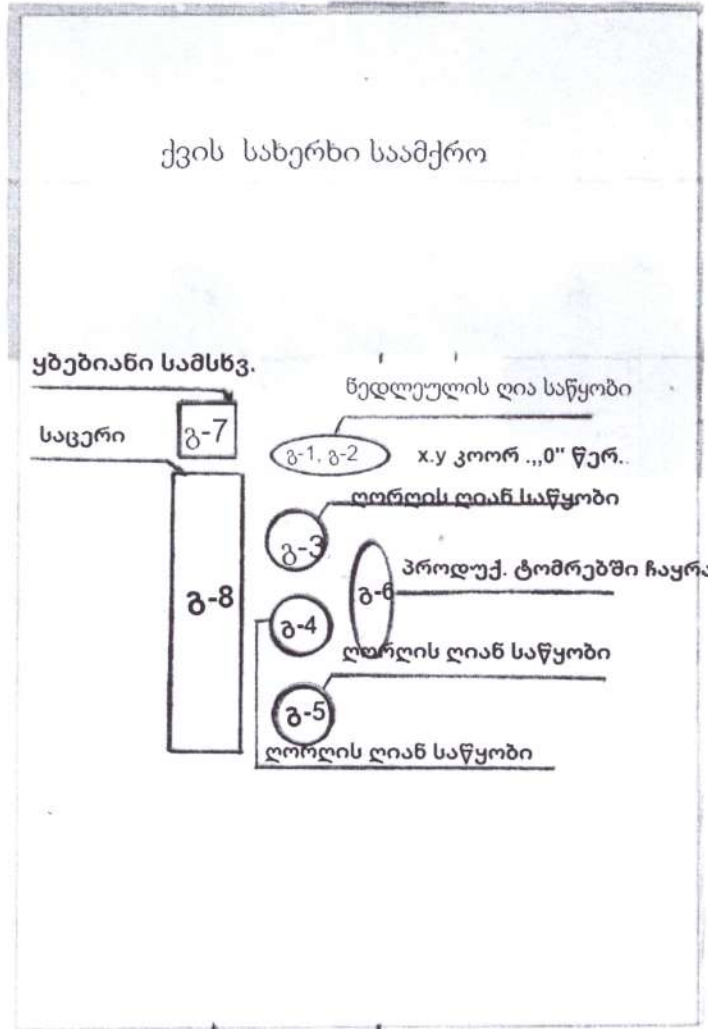 ქვის სახერხი საამქრო
ყბებიანი სამსხვ.
ნედლეულის ღია საწყობი
გ-7
საცერი
გ-1, გ-2
x.y კოორ .,,0" წერ.
ღორღის ღიან საწყობი
გ-3
პროდუქ. ტომრებში ჩაყრა
გ-6
გ-8
გ-4
ღორღის ღიან საწყობი
გ-5
ღორღის ღიან საწყობი